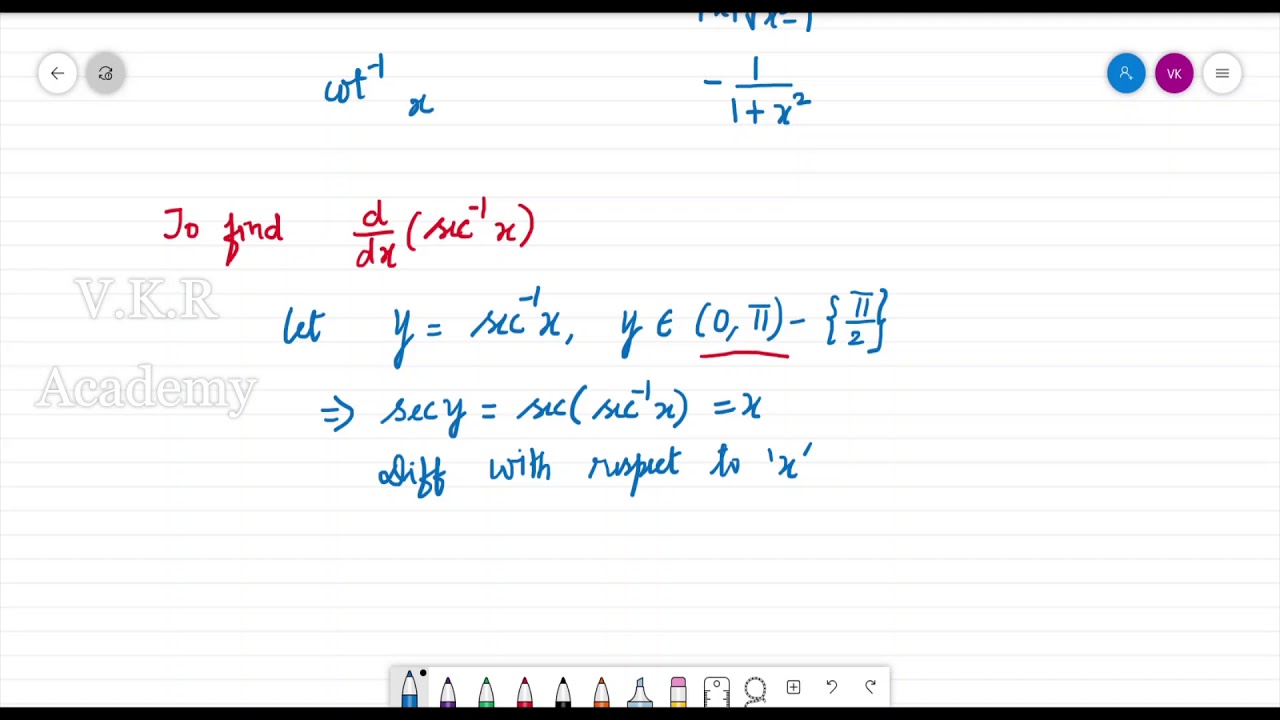 |x|√x²-1
cot⁻¹ x	- 1/(1+x²)
VK
To find d/dx (sec⁻¹ x)
V.K.R
Academy
let y = sec⁻¹x, y ∈ (0, π) - {π/2}
⇒ sec y = sec(sec⁻¹x) = x
Diff with respect to 'x'